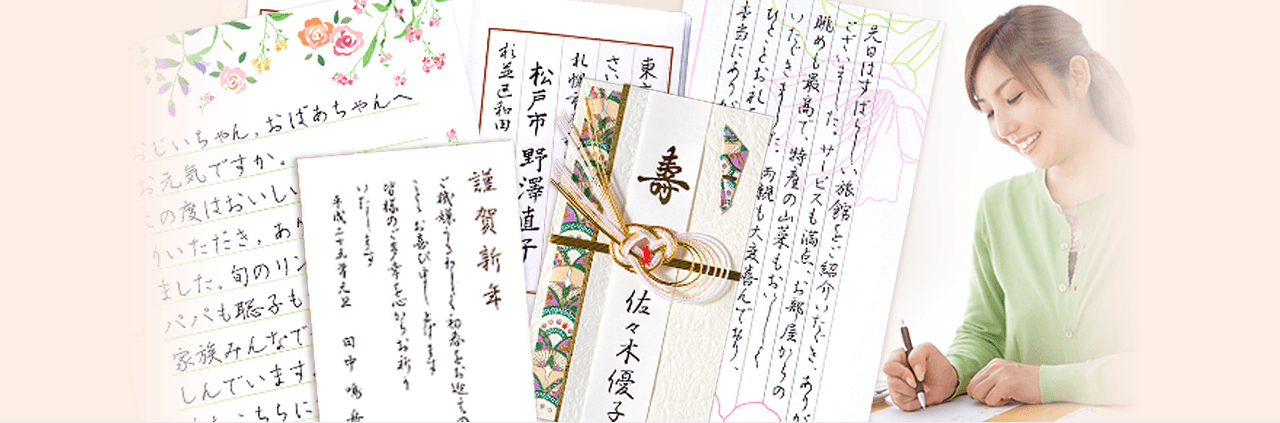 おじいちゃん、おばあちゃんへ
お元気ですか。
この度はおいしい
いただき、あり
ました。旬のリン
パパも聡子も
家族みんなで
しんでいます。
こちらに
謹賀新年
ご機嫌うるわしく初春をお迎えの
こととお喜び申し上げます
皆様のご多幸を心からお祈り
いたします
平成二十五年元旦
田中
東
さい
札幌市
松戸市 野澤直子
杉並区和田
寿
佐々木優子
先日はすばらしい旅館をご紹介いただき、ありが
ございました。サービスも満点、お部屋からの
眺めも最高で、特産の山菜もおいしく
いただきました。両親も大変喜んでおり、
ひとことお礼
本当にありが